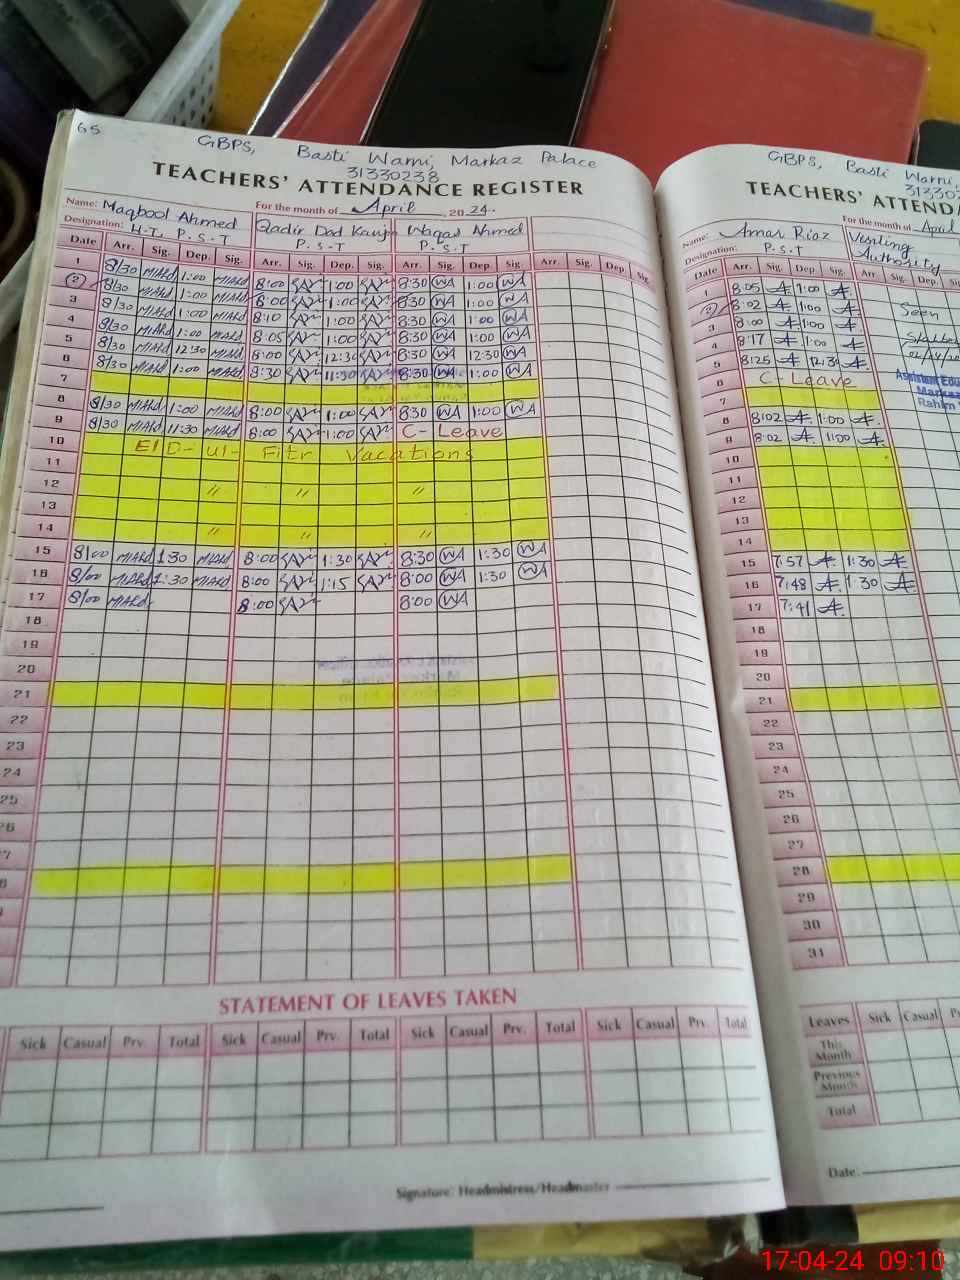 65
GBPS, Basti Warni, Markaz Palace
31330238
TEACHERS' ATTENDANCE REGISTER
For the month of April, 2024.
Name: Maqbool Ahmed Qadir Dad Waqas Ahmed
Designation: H.T, P.S.T P.S.T P.S.T
Date Arr. Sig. Dep. Sig. Arr. Sig. Dep. Sig. Arr. Sig. Dep. Sig. Arr. Sig. Dep. Sig.
1 8/30 1:00 8:00 1:00 8:30 WA 1:00 WA
2 8/30 1:00 8:00 1:00 8:30 WA 1:00 WA
3 8/30 1:00 8:10 1:00 8:30 WA 1:00 WA
4 8/30 1:00 8:05 1:00 8:30 WA 1:00 WA
5 8/30 12:30 8:00 12:30 8:30 WA 12:30 WA
6 8/30 1:00 8:30 11:30 8:30 WA 1:00 WA
7
8 8/30 1:00 8:00 1:00 8:30 WA 1:00 WA
9 8/30 11:30 8:00 1:00 C-Leave
10 EID-ul-Fitr Vacations
11
12 " " "
13
14 " " "
15 8/00 1:30 8:00 1:30 8:30 WA 1:30 WA
16 8/00 1:30 8:00 1:15 8:00 WA 1:30 WA
17 8/00 8:00 8:00 WA
18
19
20
21
22
23
24
25
26
7
8
STATEMENT OF LEAVES TAKEN
Sick Casual Prv. Total Sick Casual Prv. Total Sick Casual Prv. Total Sick Casual Prv. Total
Signature: Headmistress/Headmaster
GBPS, Basti Warni,
31330
TEACHERS' ATTENDA
For the month of April
Name: Amar Riaz Visiting Authority
Designation: P.S.T
Date Arr. Sig. Dep Sig. Arr. Sig. Dep.
1 8:05 1:00
2 8:02 1:00 Seen
3 8:00 1:00
4 8:17 1:00
5 8:25 12:30
6 C-Leave Assistant Edu
7 Markaz
8 8:02 1:00 Rahim
9 8:02 1:00
10
11
12
13
14
15 7:57 1:30
16 7:48 1:30
17 7:41
18
19
20
21
22
23
24
25
26
27
28
29
30
31
Leaves Sick Casual
This Month
Previous Month
Total
Date:
17-04-24 09:10